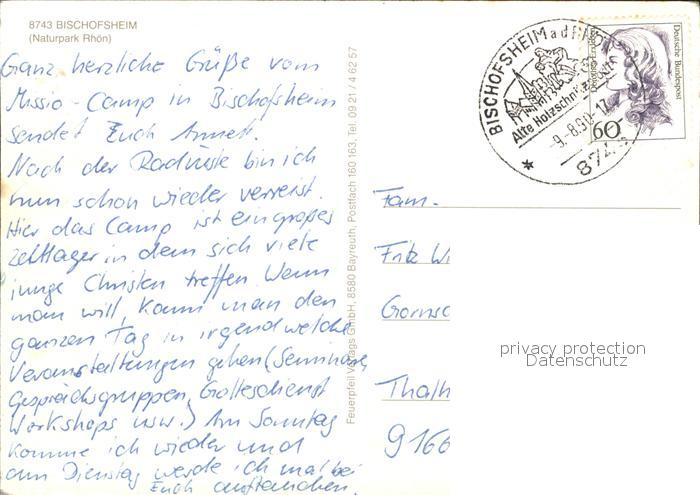 8743 BISCHOFSHEIM
(Naturpark Rhön)
Ganz herzliche Grüße vom
Missio-Camp in Bischofsheim
sendet Euch Annett.
Nach der Radriste bin ich
nun schon wieder verreist.
Hier das Camp ist ein großes
Zeltlager in dem sich viele
junge Christen treffen. Wenn
man will, kann man den
ganzen Tag in irgendwelche
Veranstaltungen gehen (Seminare,
Gesprächsgruppen, Gottesdienst
Workshops usw.) Am Sonntag
komme ich wieder und
am Dienstag werde ich mal bei
Euch auftauchen.
Feuerpfeil Verlags GmbH, 8580 Bayreuth, Postfach 160 163, Tel. 09 21 / 4 62 57
BISCHOFSHEIM a d RHÖN
Alte Holzschnitzer
-9.-8.90-17
874
Deutsche Bundespost
60
Fam.
Fritz Wi
Gornsc
Thalh
9166
privacy protection
Datenschutz